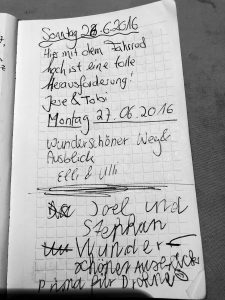 Sonntag 26.6.2016
Hier mit dem Fahrrad
hoch ist eine tolle
Herausforderung!
Jese & Tobi
Montag 27.06.2016
Wunderschöner Weg &
Ausblick
Elli & Ulli
Joel und
Stephan
Wunder-
schöner
für